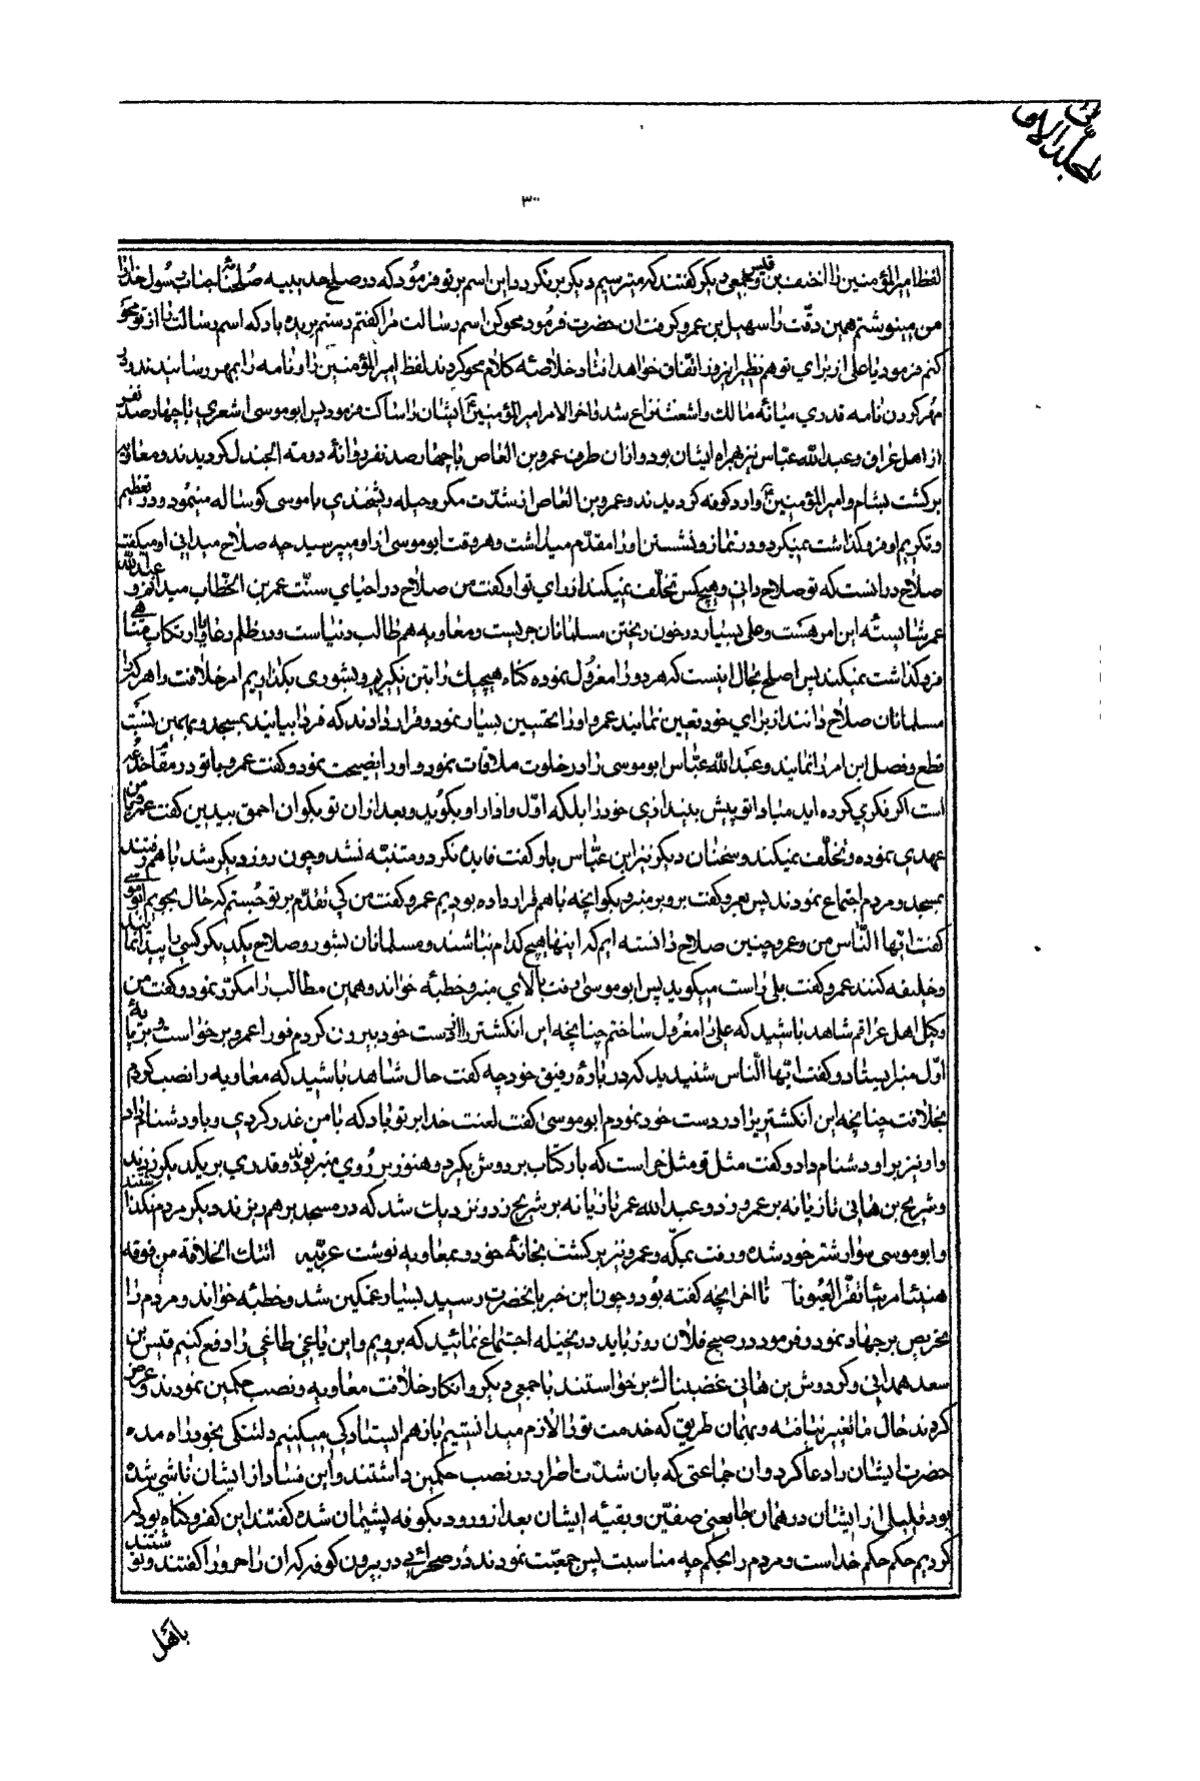 المجلد الاول
۳۰۰
لفظ امیرالمؤمنین را احنف بن قیس و جمعی دیکر کفتند که میترسیم دیکر برنکردد این اسم بر تو فرمود که در صلح حدیبیه صلحنامه جناب رسول خدا را
من مینوشتم همین دقت را سهیل بن عمرو کرفت ان حضرت فرمود محو کن اسم رسالت مرا کفتم دستم بریده باد که اسم رسالت را از تو محو
کنم فرمود یا علی از برای تو هم نظیر این روز اتفاق خواهد افتاد خلاصه کلام محو کردند لفظ امیرالمؤمنین را و نامه را بمهر رسانیدند و در
مهر کردن نامه قدری میانه مالک و اشعث نزاع شد تا اخر الامر امیرالمؤمنین ایشان را ساکت فرمود پس ابو موسی اشعری با چهار صد نفر
از اهل عراق و عبد الله عباس نیز همراه ایشان بود و از ان طرف عمرو بن العاص با چهار صد نفر روانه دومة الجندل کردیدند و معاویه
برکشت بشام و امیرالمؤمنین وارد کوفه کردیدند و عمرو بن العاص از شدت مکر و حیله و ریشخندی با موسی کوساله مینمود و در تعظیم
و تکریم او فروکذاشت نمیکرد و در نماز و نشستن او را مقدم میداشت و هر وقت ابو موسی از او میپرسید چه صلاح میدانی او میکفت
صلاح در انست که تو صلاح دانی و هیچکس تخلف نمیکند از رای تو او کفت من صلاح در احیای سنت عمر بن الخطاب میدانم و عبد الله
عمر شایسته این امر هست و علی بسیار در خون ریختن مسلمانان جریست و معاویه هم طالب دنیاست و در ظلم رعایا و ارتکاب مناهی
فروکذاشت نمیکند پس اصلح بحال اینست که هر دو را معزول نموده کناه هیچیک را بتن نکیریم و بشوری بکذاریم امر خلافت را هر که را
مسلمانان صلاح دانند از برای خود تعیین نمایند عمرو او را تحسین بسیار نمود و قرار دادند که فردا بیایند بمسجد و بهمین نسبت
قطع و فصل این امر را نمایند و عبد الله عباس ابو موسی را در خلوت ملاقات نمود و او را نصیحت نمود و کفت عمرو با تو در مقام خدعه
است اکر فکری کرده اید مبادا تو پیش بیندازی خود را بلکه اول وادار او بکوید و بعد از ان تو بکو ان احمق بیدین کفت عمرو با من
عهدی نموده و تخلف نمیکند و سخنان دیکر نیز ابن عباس باو کفت فایده نکرد و متنبه نشد و چون روز دیکر شد با هم رفتند
بمسجد و مردم اجتماع نمودند پس بعمرو کفت برو بمنبر و بکو انچه با هم قرار داده بودیم عمرو کفت من کی تقدم بر تو جستم که حال بجویم ابو موسی
کفت ایها الناس من و عمرو چنین صلاح دانسته ایم که اینها هیچ کدام نباشند و مسلمانان بشور و صلاح یکدیکر کسی را پیدا نمایند
و خلیفه کنند عمرو کفت بلی راست میکوید پس ابو موسی رفت بالای منبر و خطبه خواند و همین مطالب را مکرر نمود و کفت من
وکیل اهل عراقم شاهد باشید که علی را معزول ساختم چنانچه این انکشتر را از دست خود بیرون کردم فورا عمرو برخواست و بر پایه
اول منبر ایستاد و کفت ایها الناس شنیدید که در باره رفیق خود چه کفت حال شاهد باشید که معاویه را نصب کردم
بخلافت چنانچه این انکشتر را در دست خود نمودم ابو موسی کفت لعنت خدا بر تو باد که با من غدر کردی و باو دشنام داد
و او نیز بر او دشنام داد و کفت مثل تو مثل خر است که بار کتاب بر دوش بکیرد و هنوز بر روی منبر بودند و قدری بر یکدیکر زدند
و شریح بن هانی تازیانه بر عمرو زد و عبد الله عمر تازیانه بر شریح زد و نزدیک شد که در مسجد بر هم ریزند دیکر مردم نکذاشتند
و ابو موسی سوار شتر خود شده و رفت بمکه و عمرو نیز برکشت بخانه خود و بمعاویه نوشت عربیه اتتک الخلافة من فوقه
هنیئا مریئا تقر العیونا تا اخر انچه کفته بود و چون این خبر بانحضرت رسید بسیار غمکین شد و خطبه خواند و مردم را
تحریص بر جهاد نمود و فرمود در صبح فلان روز باید در نخیله اجتماع نمائید که برویم و این یاغی طاغی را دفع کنیم قیس بن
سعد همدانی و کردوش بن هانی غضبناک برخواستند با جمعی دیکر و انکار خلافت معاویه و نصب حکمین نمودند و عرض
کردند حال ما تغییر نیافته و بهمان طریق که خدمت تو را لازم میدانستیم باز هم ایستادکی میکنیم دلتنکی بخود راه مده
حضرت ایشان را دعا کرد و ان جماعتی که بان شدت اصرار در نصب حکمین داشتند و این فساد از ایشان ناشی شده
بود قلیلی از ایشان در همان جا یعنی صفین و بقیه ایشان بعد از ورود بکوفه پشیمان شده کفتند این کفر و کناه بود که
کردیم حکم حکم خداست و مردم را بحکم چه مناسبت پس جمعیت نمودند در صحرائی در بیرون کوفه که ان را حرورا کفتند و نوشتند
باهل